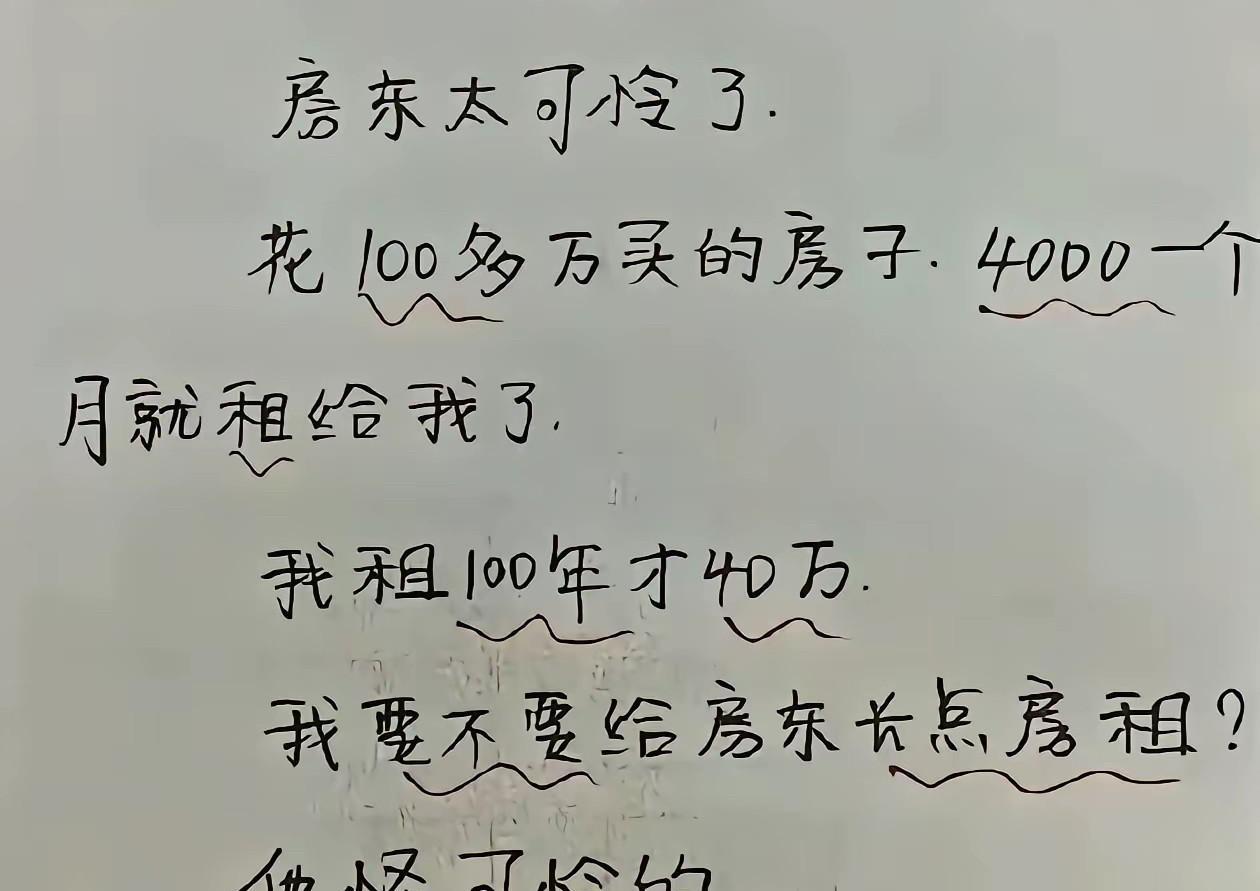 房东太可怜了.
花100多万买的房子.4000一个
月就租给我了.
我租100年才40万.
我要不要给房东长点房租?
他怪可怜的